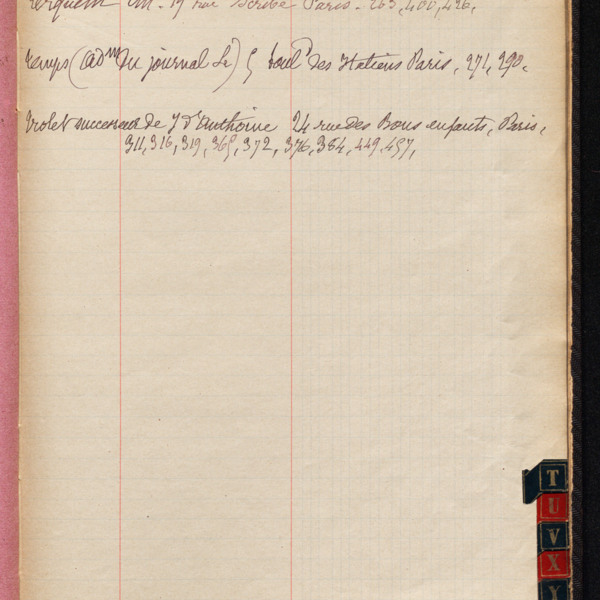 Terquem Em. 19 rue Scribe Paris. 263, 400, 426,
Temps (adm^on du journal Le) 5 boul^d des Italiens Paris, 271, 290.
Violet successeur de J d'Anthoine 24 rue des Bons enfants, Paris,
311, 316, 319, 365, 372, 376, 384, 449, 457,
T
U
V
X
Y